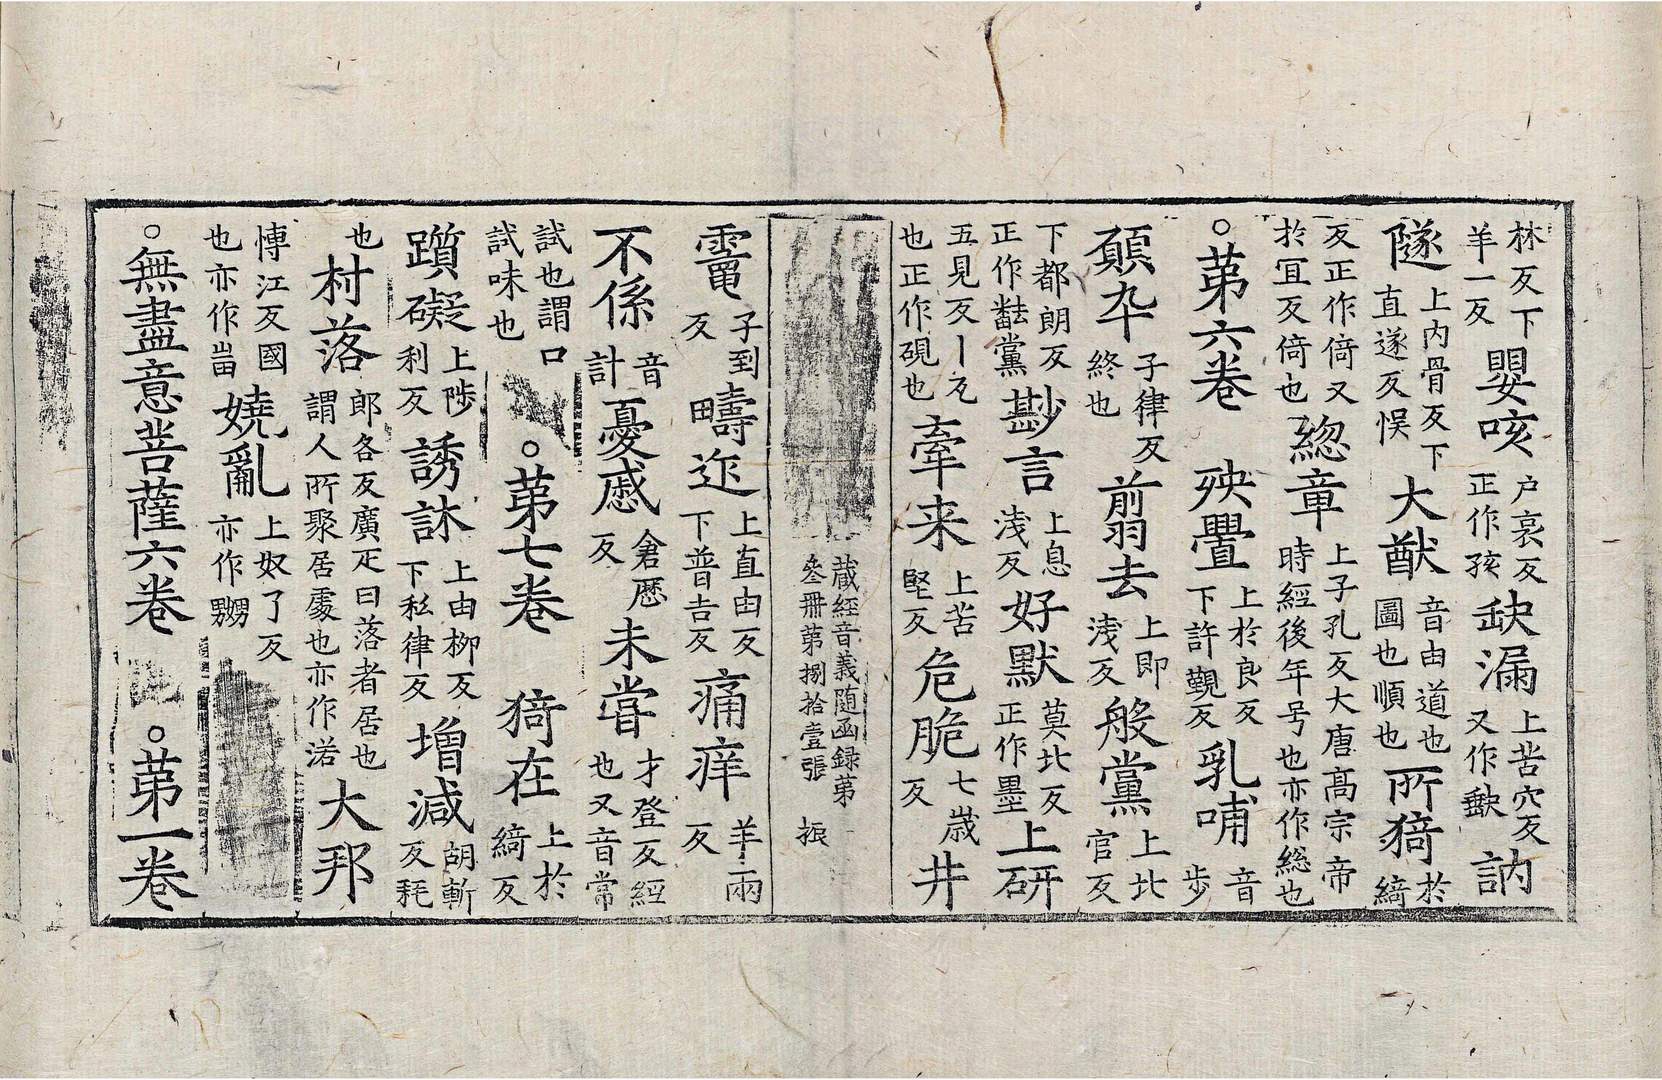 林反下羊一反嬰咳户哀反正作孩缺漏上苦穴反又作訥
隧上内骨反下直遂反悮大猷音由道也圖也順也所猗於綺
反正作倚又於冝反倚也緫章上子孔反大唐髙宗帝時經後年号也亦作総也
○第六卷 殃舋上於良反下許覲反乳哺音步
願卆子律反終也翦去上即浅反般黨上北官反
下都朗反正作黨尠言上息浅反好默莫北反正作墨上研
五見反丨充也正作硯也牽来上苦堅反危脆七歳反井
蔵經音義随函録第叁冊第捌拾壹張 振
竃子到反疇迩上直由反下普吉反痛痒羊兩反
不係音計憂慼倉歷反未甞才登反經也又音常
試也謂口試味也 ○第七卷 猗在上於綺反
躓礙上陟利反誘訹上由柳反下私律反增減胡斬反耗
也村落郎各反廣疋曰落者居也謂人所聚居處也亦作大邦
愽江反國也亦作峀嬈亂上奴了反亦作嬲
○無盡意菩薩六卷 ○第一卷